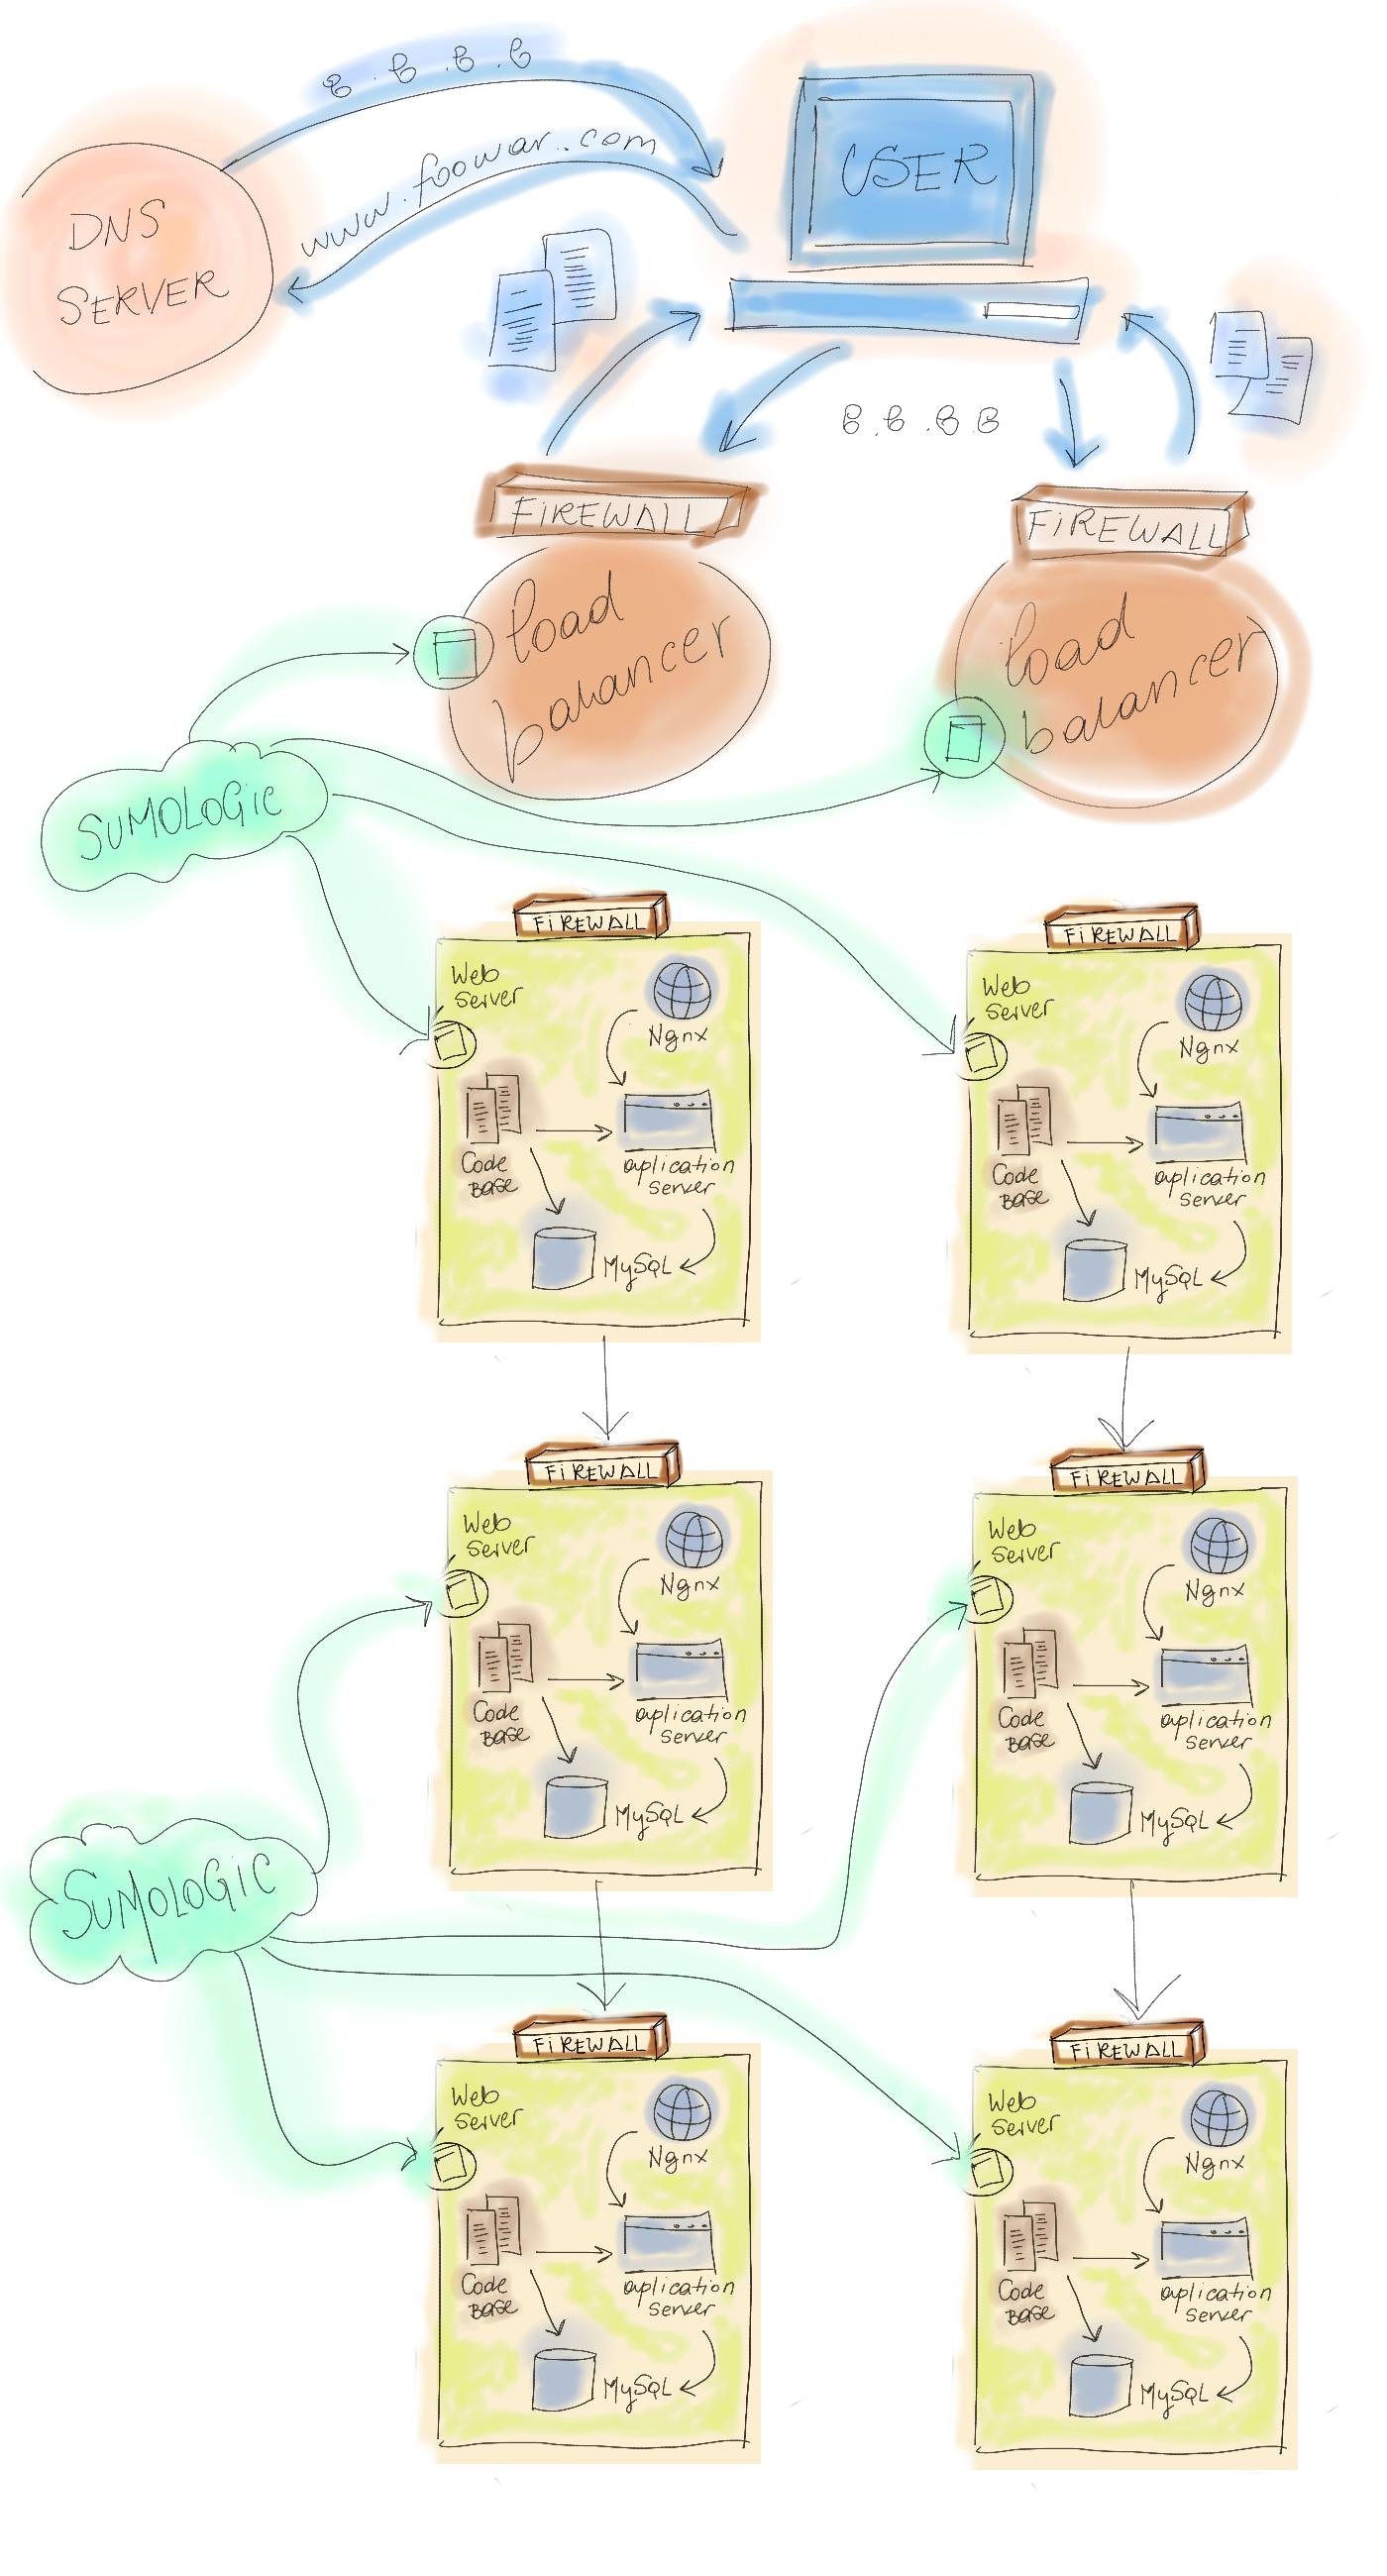 8.8.8.8
www.foowar.com
USER
DNS
SERVER
8.8.8.8
FiREWALL
FiREWALL
load
balancer
load
balancer
SUMOLOGIC
FiREWALL
Web
Server
Ngnx
Code
Base
aplication
Server
MySQL
FiREWALL
Web
Server
Ngnx
Code
Base
aplication
Server
MySQL
FiREWALL
Web
Server
Ngnx
Code
Base
aplication
Server
MySQL
FiREWALL
Web
Server
Ngnx
Code
Base
aplication
Server
MySQL
SUMOLOGIC
FiREWALL
Web
Server
Ngnx
Code
Base
aplication
Server
MySQL
FiREWALL
Web
Server
Ngnx
Code
Base
aplication
Server
MySQL